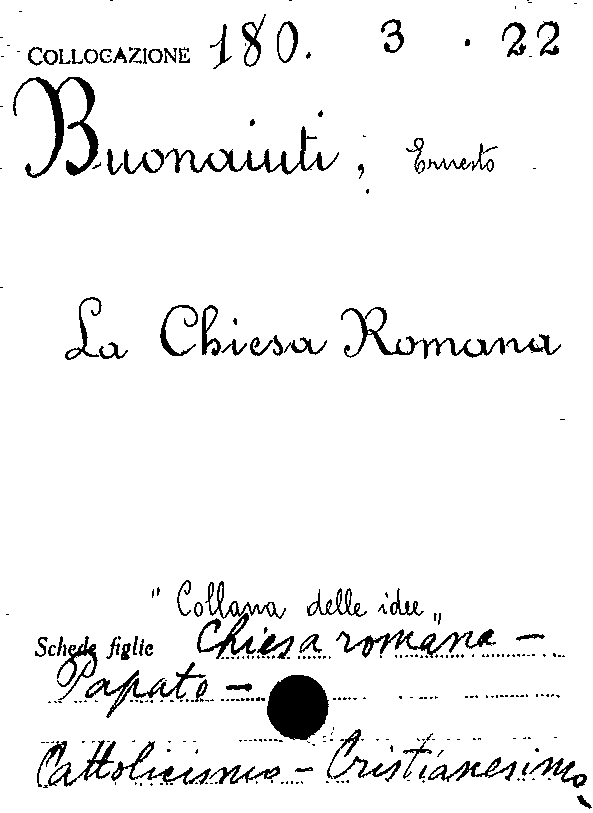 COLLOCAZIONE 180. 3 . 22
Buonaiuti, Ernesto
La Chiesa Romana
"Collana delle idee"
Schede figlie Chiesa romana –
Papato –
Cattolicismo – Cristianesimo